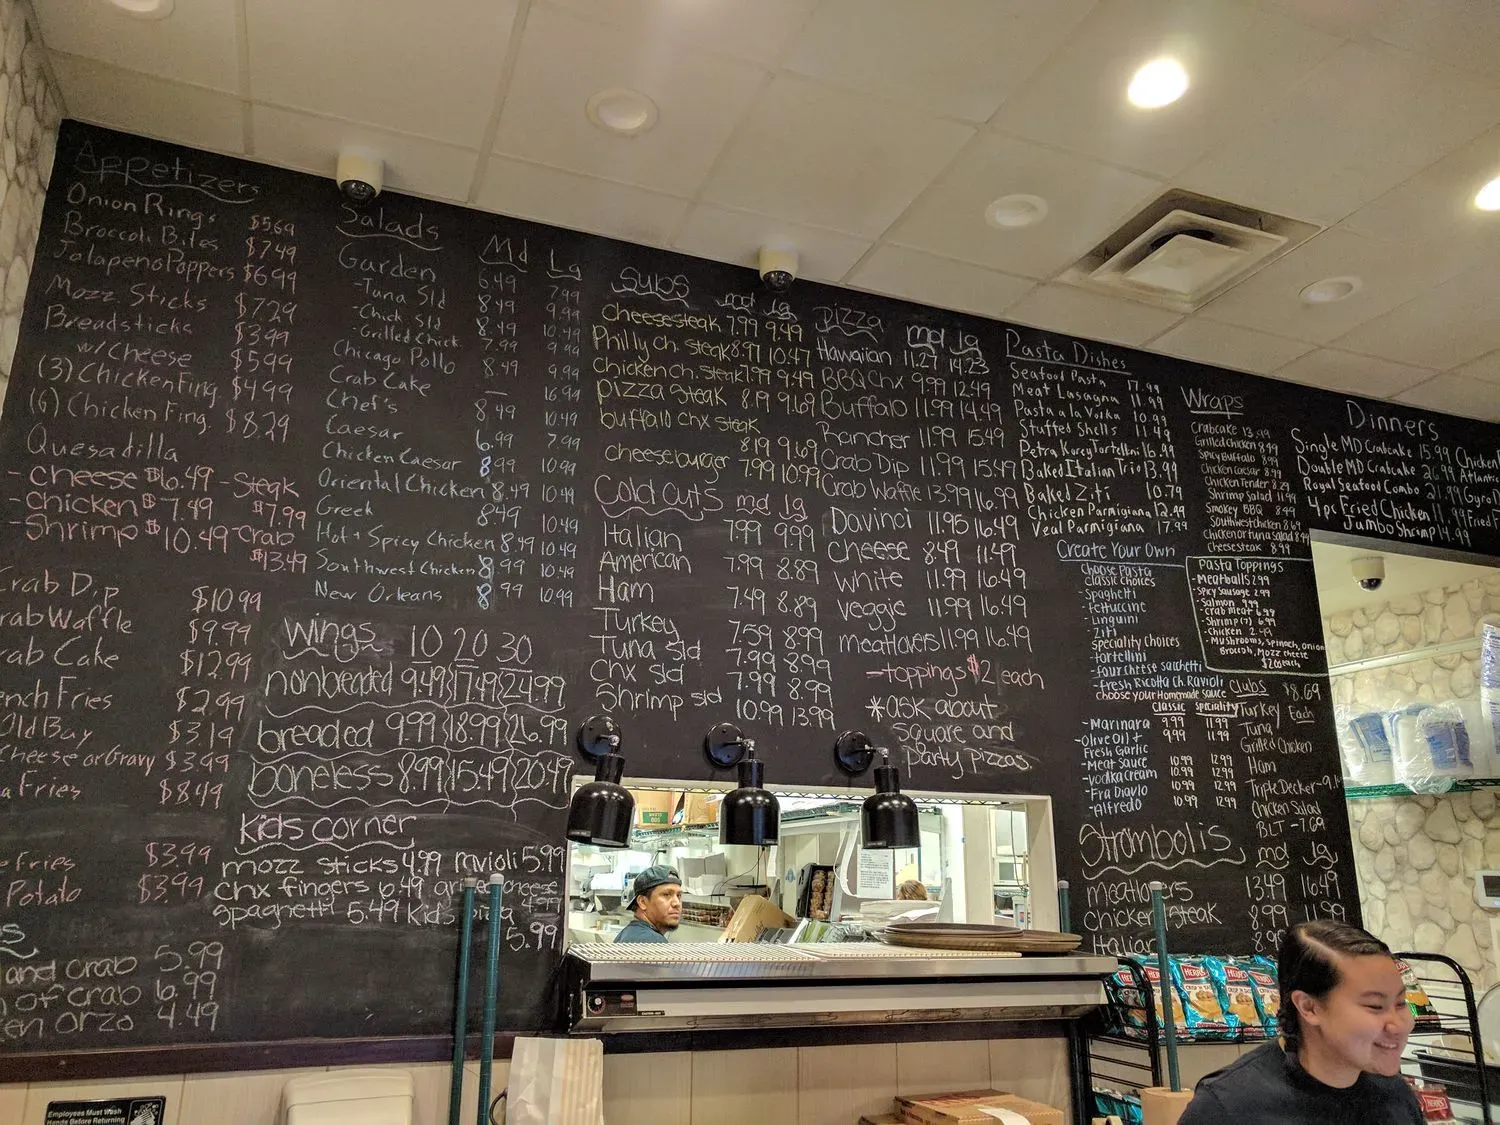 Appetizers
Onion Rings $5.69
Broccoli Bites $7.49
Jalapeno Poppers $6.99
Mozz Sticks $7.29
Breadsticks $3.99
w/ Cheese $5.99
(3) Chicken Fing. $4.99
(6) Chicken Fing. $8.29
Quesadilla
- Cheese $6.49 - Steak
- Chicken $7.49 $7.99
- Shrimp $10.49 - Crab
$13.49
Crab Dip $10.99
Crab Waffle $9.99
Crab Cake $12.99
ench Fries $2.99
Old Bay $3.19
Cheese or Gravy $3.99
a Fries $8.49
e Fries $3.99
Potato $3.99
s
and crab 5.99
of crab 6.99
en Orzo 4.49
Salads Md Lg
Garden 6.49 7.99
- Tuna Sld 8.49 9.99
- Chick Sld 8.49 10.49
- Grilled Chick 7.99 9.99
Chicago Pollo 8.49 9.99
Crab Cake — 16.99
Chef's 8.49 10.49
Caesar 6.99 7.99
Chicken Caesar 8.99 10.99
Oriental Chicken 8.49 10.49
Greek 8.49 10.49
Hot & Spicy Chicken 8.49 10.49
Southwest Chicken 8.99 10.49
New Orleans 8.99 10.99
Wings 10 20 30
nonbreaded 9.49 17.49 24.99
breaded 9.99 18.99 26.99
boneless 8.99 15.49 20.49
Kids corner
mozz sticks 4.99 ravioli 5.99
chx fingers 6.49 cheese
4.99
spaghetti 5.49 Kids
5.99
Subs md lg
cheesesteak 7.99 9.49
Philly ch. steak 8.97 10.47
Chicken ch. steak 7.99 9.49
pizza steak 8.19 9.69
buffalo chx steak
8.19 9.69
cheeseburger 7.99 10.99
Cold cuts md lg
Italian 7.99 9.99
American 7.99 8.89
Ham 7.49 8.89
Turkey 7.59 8.99
Tuna sld 7.99 8.99
chx sld 7.99 8.99
Shrimp sld 10.99 13.99
pizza md lg
Hawaiian 11.27 14.23
BBQ Chx 9.99 12.49
Buffalo 11.99 14.49
Rancher 11.99 15.49
Crab Dip 11.99 15.49
Crab Waffle 13.99 16.99
Davinci 11.95 16.49
cheese 8.49 11.49
white 11.99 16.49
veggie 11.99 16.49
meatlovers 11.99 16.49
- toppings $2 each
*ask about
square and
party pizzas.
Pasta Dishes
Seafood Pasta 17.99
Meat Lasagna 11.99
Pasta ala Vodka 10.99
Stuffed Shells 11.49
Petra Korey Tortellini 16.99
Baked Italian Trio 13.99
Baked Ziti 10.79
Chicken Parmigiana 12.49
Veal Parmigiana 17.99
Create Your Own
Choose Pasta
Classic Choices
- Spaghetti
- Fettuccine
- Linguini
Ziti
Speciality Choices
- Tortellini
- Four Chese Sacchetti
- Fresh Ricotta Ch Ravioli
Choose your Homemade Sauce
Classic Speciality
- Marinara 9.99 11.99
- Olive Oil + 9.99 11.99
Fresh Garlic
- Meat Sauce 10.99 12.99
- Vodka Cream 10.99 12.99
- Fra Diavlo 10.99 12.99
- Alfredo 10.99 12.99
Strombolis md lg
meatlovers 13.49 16.49
chicken steak 8.99 11.99
Italian 8.9
Wraps
Crabcake 13.99
Grilled Chicken 8.99
Spicy Buffalo 8.99
Chicken Caesar 8.99
Chicken Tender 8.29
Shrimp Salad 11.99
Smokey BBQ 8.99
Southwest Chicken 8.69
Chicken or Tuna Salad 8.99
Cheesesteak 8.99
Pasta Toppings
- Meatballs 2.99
- Spicy Sausage 2.99
- Salmon 9.99
- Crab meat 6.99
- Shrimp (7) 6.99
- Chicken 2.49
- Mushrooms, Spinach, onion
Brocolli, Mozz cheese
$2.00 each
Clubs $8.69
Turkey Each
Tuna
Grilled Chicken
Ham
Triple Decker -9.1
Chicken Salad
BLT -7.69
Dinners
Single MD Crabcake 15.99 Chicken
Double MD Crabcake 26.99 Atlantic
Royal Seafood Combo 21.99 Gyro D
4 pc Fried Chicken 11.99 Fried F
Jumbo Shrimp 14.99
HERR'S
Employees Must Wash
Hands Before Returning